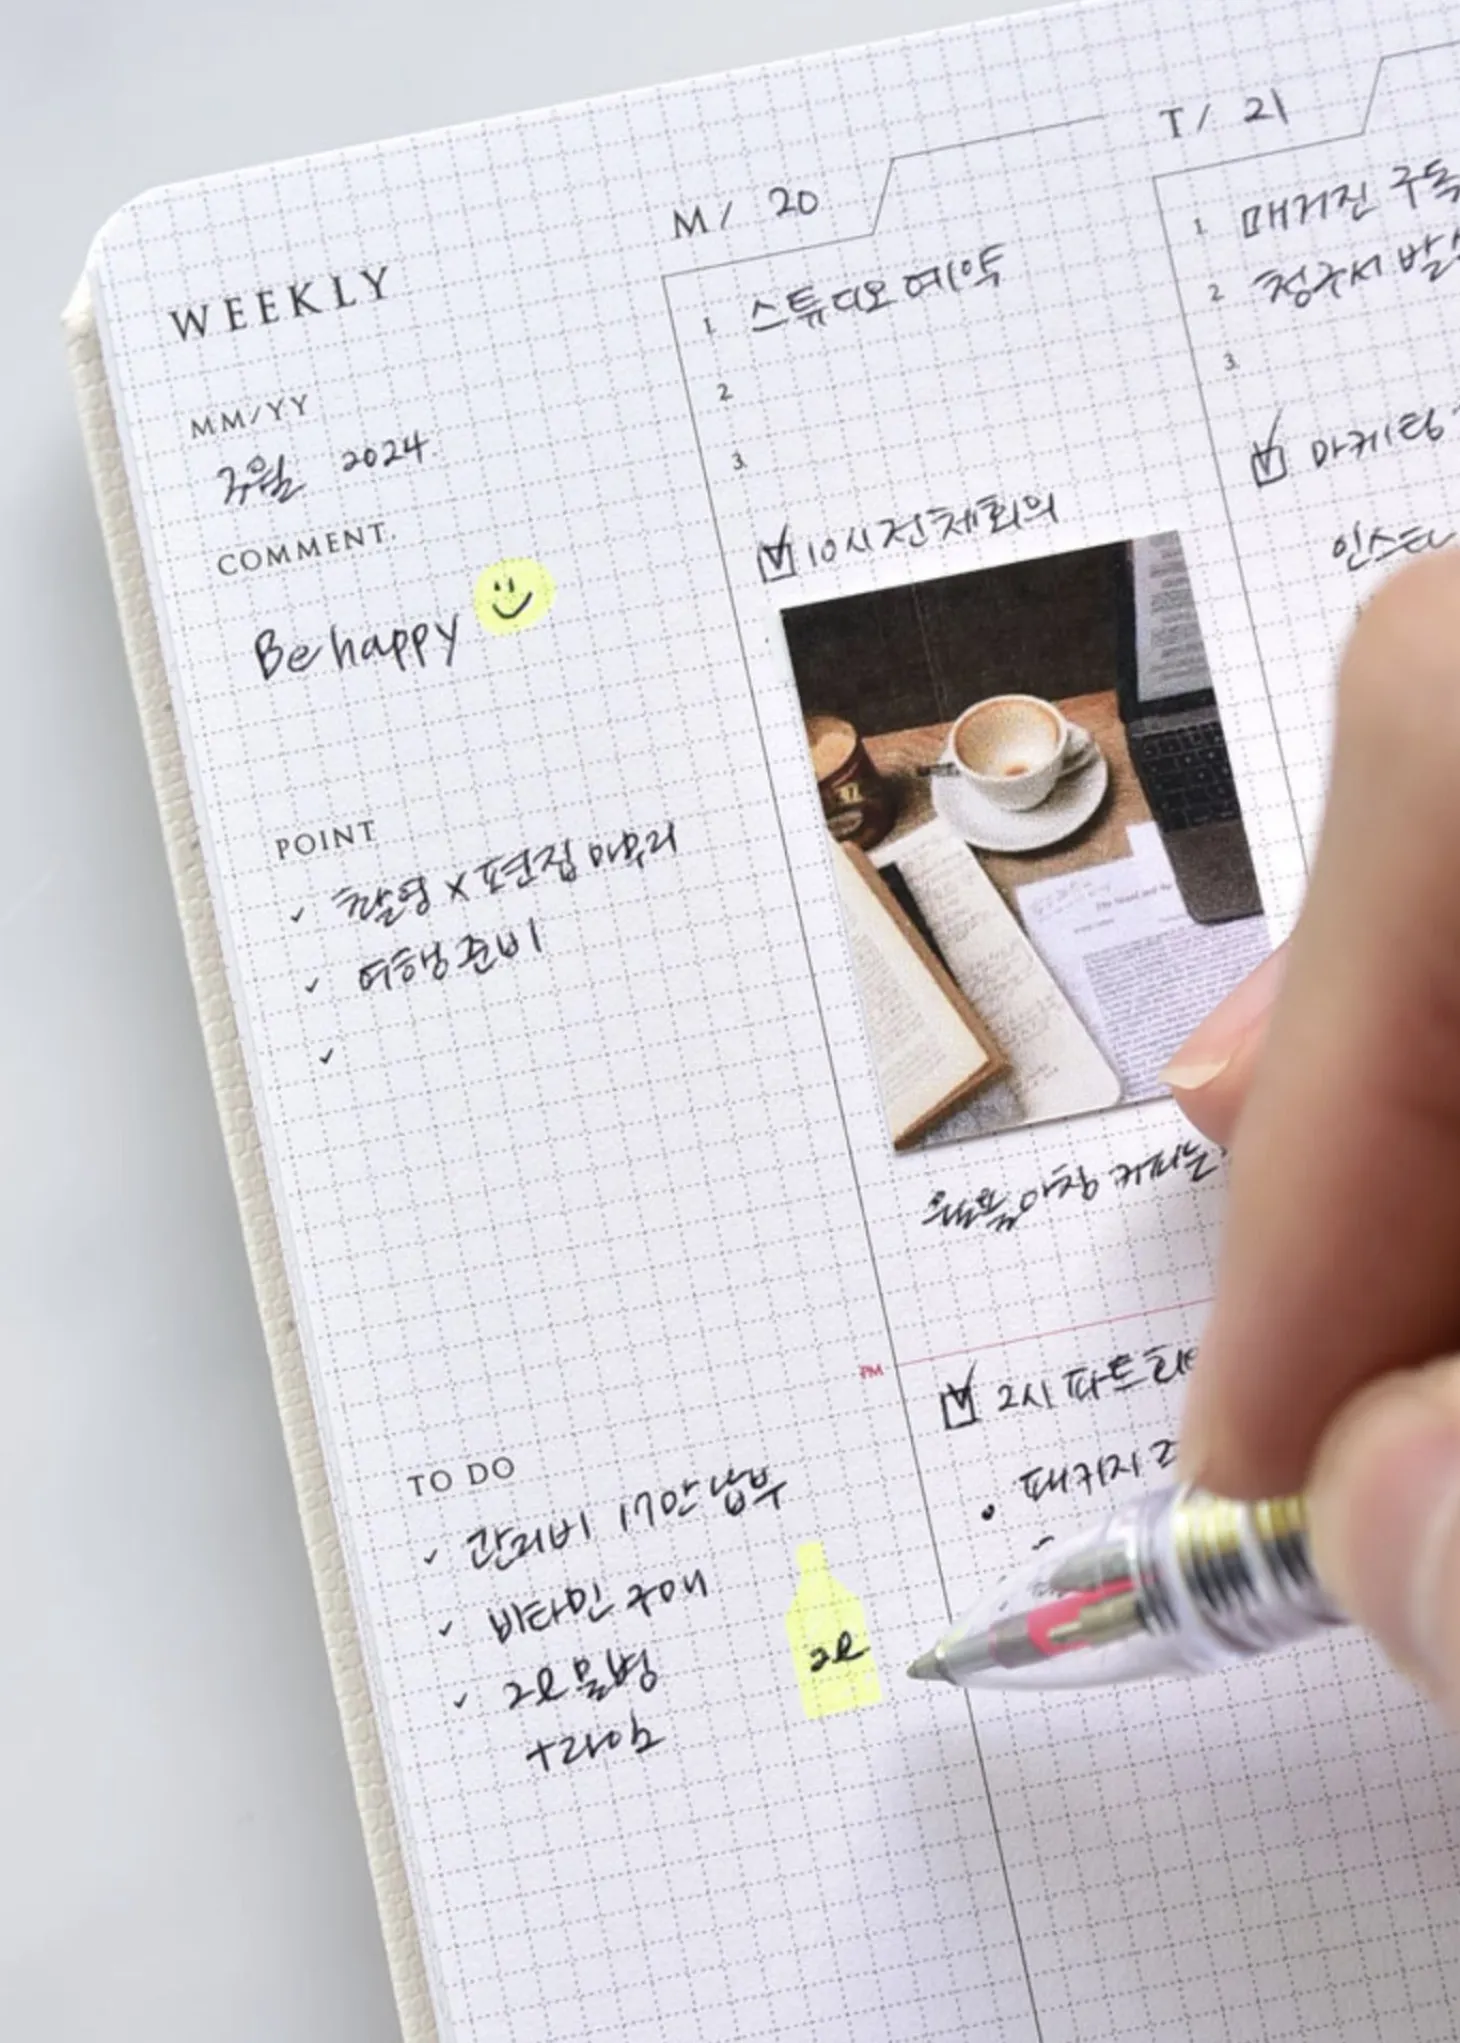 WEEKLY
MM/YY
3월 2024.
COMMENT.
Be happy
POINT
촬영 x 편집 마무리
여행 준비
TO DO
관리비 17만 납부
비타민 구매
2l 물병
+라임
2l
M / 20
1. 스튜디오 예약
2
3.
10시 전체회의
월요일 아침 커피는
PM
2시 파트
패키지
T / 21
1. 매거진 구독
2 청구서
3.
마케팅
인스타